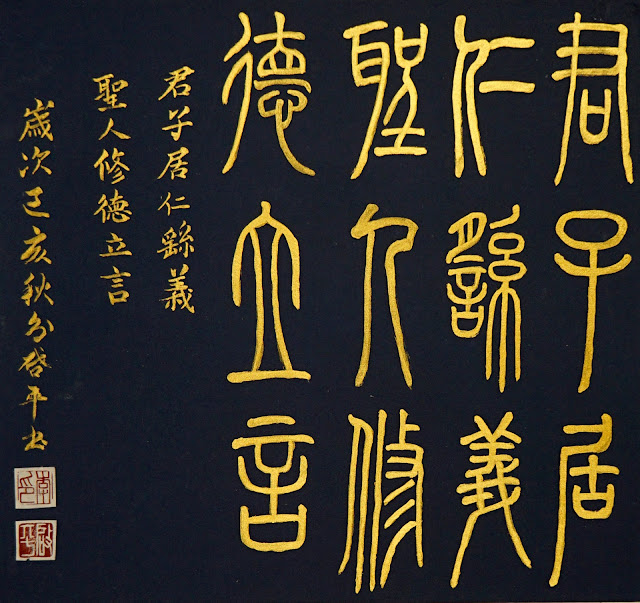 君子居
仁繇義
聖人修
德立言
君子居仁繇義
聖人修德立言
歲次己亥秋分啓平書
李印
啟平